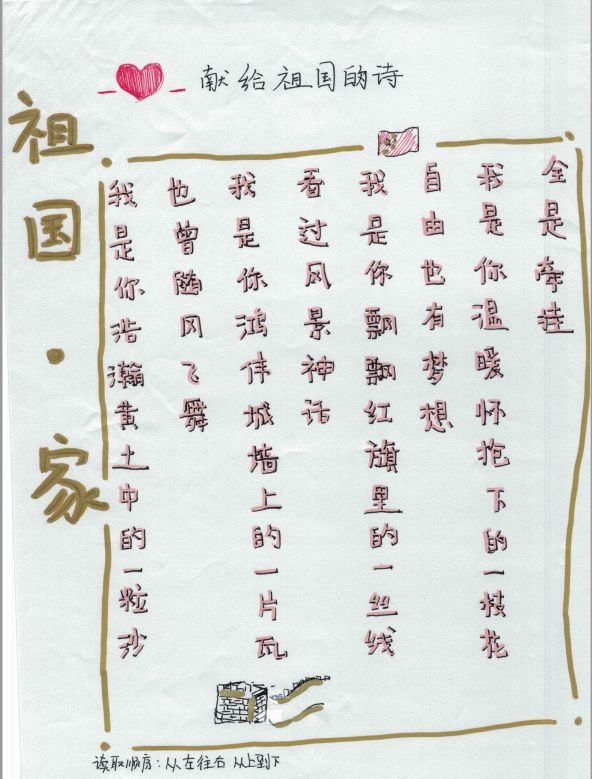 献给祖国的诗
祖国·家
我是你浩瀚黄土中的一粒沙
也曾随风飞舞
我是你鸿伟城墙上的一片瓦
看过风景神话
我是你飘飘红旗里的一丝线
自由也有梦想
我是你温暖怀抱下的一枝花
全是牵挂
读取顺序：从左往右 从上到下